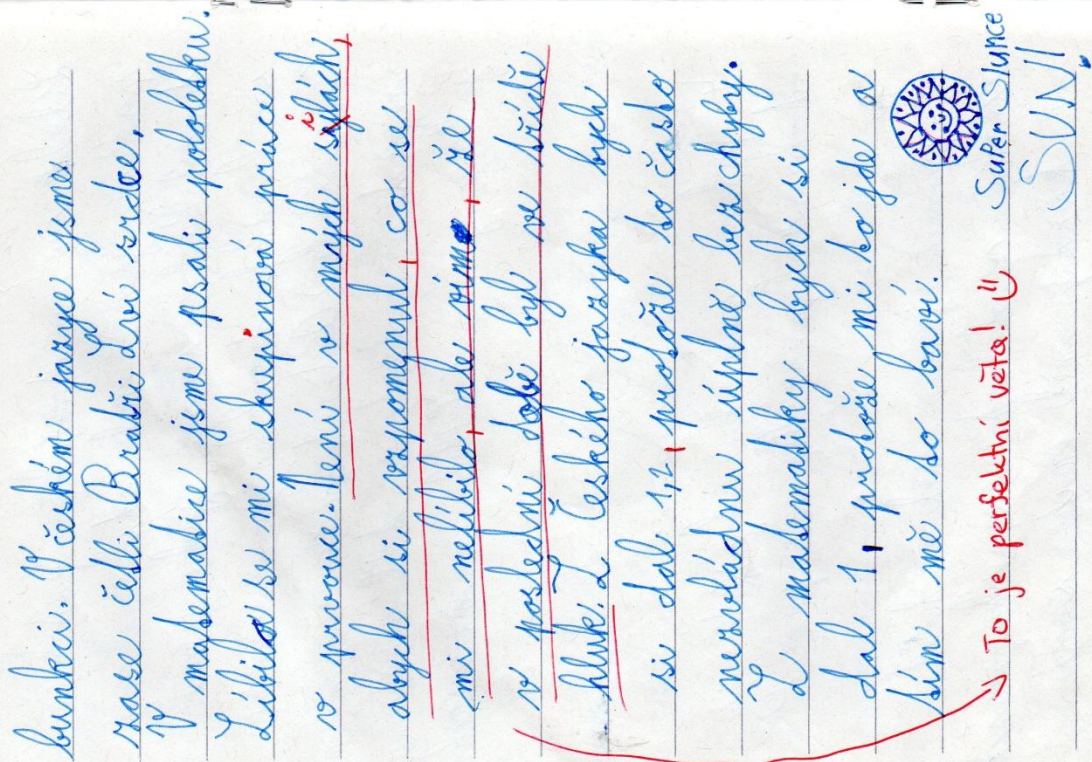 bunkci. V českém jazyce jsme
zase četli Bratři Lví srdce.
V matematice jsme psali pololetku.
Líbila se mi skupinová práce
v prvouce. Není v mých sylách,
i
abych si vzpomenul, co se
mi nelíbilo, ale vím, že
v poslední době byl ve třídě
hluk. Z Českého jazyka bych
si dal 1,2, protože to často
nezvládnu úplně bez chyby.
Z matematiky bych si
dal 1, protože mi to jde a
tím mě to baví.
To je perfektní věta!
Super Slunce
SUN!